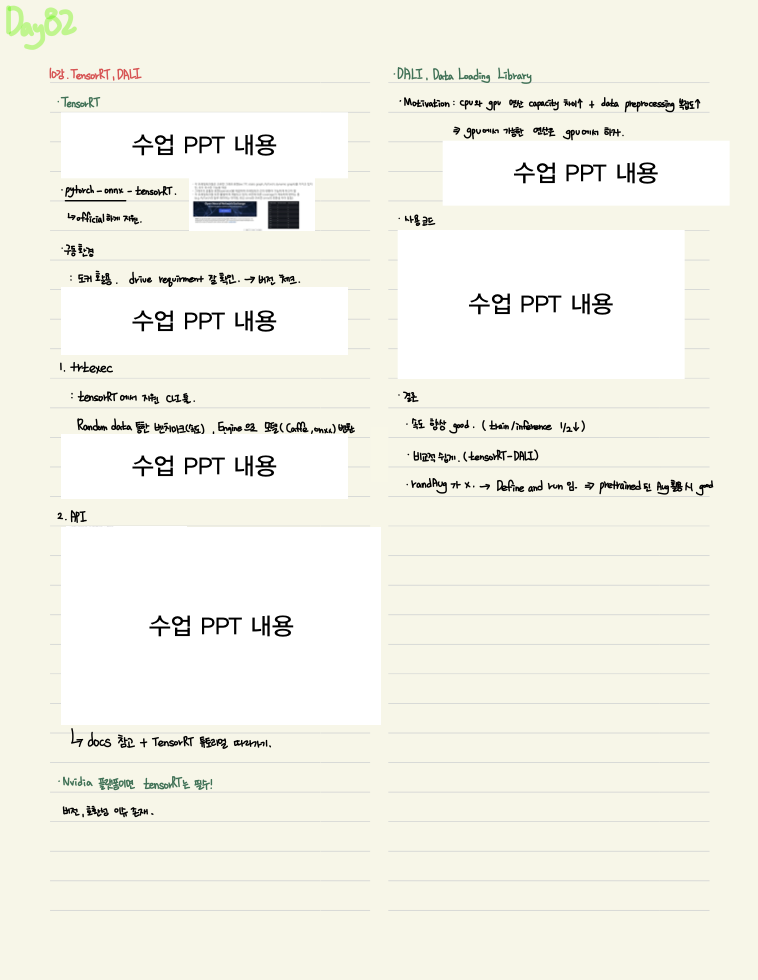 Day82
10강. TensorRT, DALI
· TensorRT
수업 PPT 내용
· pytorch - onnx - tensorRT.
↳ official하게 지원.
· 구동환경
: 도커 활용. drive requirment 잘 확인. → 버전 체크.
수업 PPT 내용
1. trtexec
: tensorRT에서 지원 CLI 툴.
Random data 통한 벤치마크(속도), Engine으로 모델(Caffe, onnx) 변환
수업 PPT 내용
2. API
수업 PPT 내용
↳ docs 참고 + TensorRT 튜토리얼 따라가기.
· Nvidia 플랫폼이면 tensorRT는 필수!
버전, 호환성 이슈 존재.
· DALI, Data Loading Library
· Motivation : cpu와 gpu 연산 capacity 차이↑ + data preprocessing 복잡도↑
⇒ gpu에서 가능한 연산은 gpu에서 하자.
수업 PPT 내용
· 사용코드
수업 PPT 내용
· 결론
· 속도 향상 good. (train/inference 1/2↓)
· 비교적 쉽게. (tensorRT-DALI)
· randAug 가 x. → Define and run 임. ⇒ pretrained 된 Aug 활용 시 good